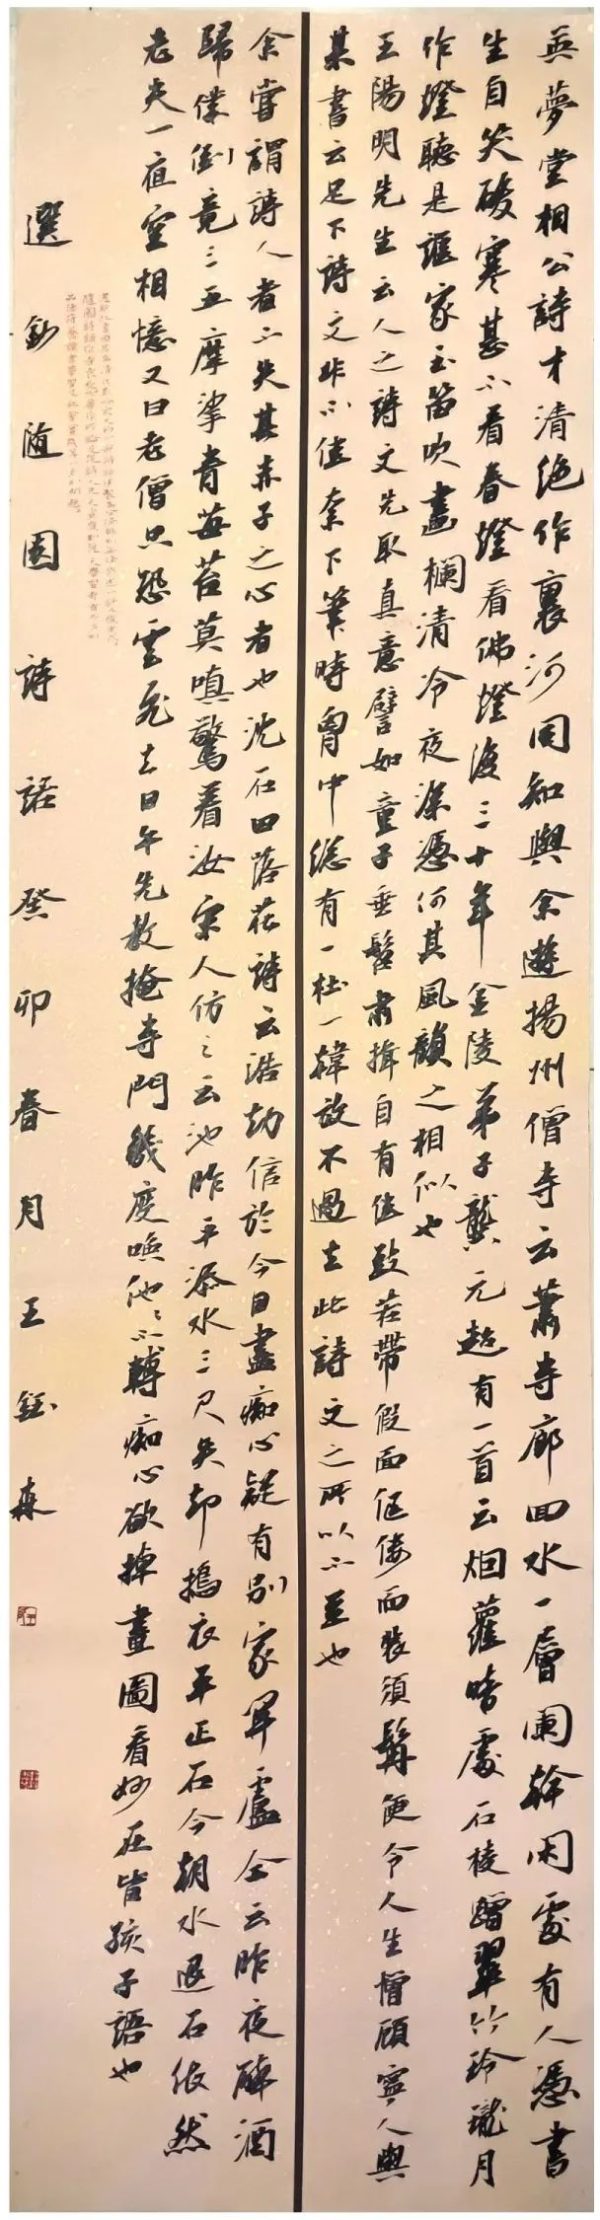 英夢堂相公詩才清絶作裏河同知與余遊揚州僧寺云蕭寺廊回水一層闌幹閑處有人憑書
生自笑酸寒甚不看春燈看佛燈後三十年金陵弟子龔元超有一首云烟蘿暗處石棱蹭翠竹玲瓏月
作燈聽是誰家玉笛吹畫欄清冷夜深憑何其風韻之相似也
王陽明先生云人之詩文先取真意譬如童子垂髫肅揖自有佳致若帶假面傴僂而裝須髯便令人生憎顧寧人與
某書云足下詩文非不佳奈下筆時胷中總有一杜一韓放不過去此詩文之所以不至也
余嘗謂詩人者不失其赤子之心者也沈石田落花詩云浩劫信於今日盡痴心疑有别家開盧仝云昨夜醉酒
歸僕倒竟三五摩挲青莓苔莫嗔驚着汝宋人仿之云池昨平添水三尺失却搗衣平正石今朝水退石依然
老夫一夜空相憶又曰老僧只恐雲飛去日午先教掩寺門幾度喚他他不轉痴心欲掉畫圖看妙在皆孩子語也
選鈔隨園詩話癸卯春月王鈺森